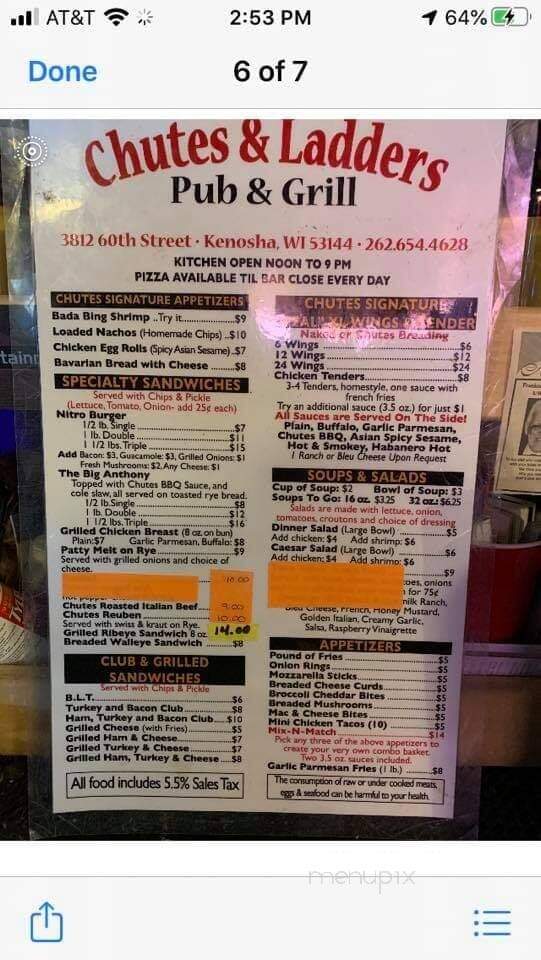 AT&T
2:53 PM
64%
Done
6 of 7
Chutes & Ladders
Pub & Grill
3812 60th Street · Kenosha, WI 53144 · 262.654.4628
KITCHEN OPEN NOON TO 9 PM
PIZZA AVAILABLE TIL BAR CLOSE EVERY DAY
CHUTES SIGNATURE APPETIZERS
Bada Bing Shrimp ..Try it.............$9
Loaded Nachos (Homemade Chips) ..$10
Chicken Egg Rolls (Spicy Asian Sesame)..$7
Bavarian Bread with Cheese .......$8
SPECIALTY SANDWICHES
Served with Chips & Pickle
(Lettuce, Tomato, Onion- add 25¢ each)
Nitro Burger
1/2 lb. Single..............$7
1 lb. Double..............$11
1 1/2 lbs. Triple..............$15
Add Bacon: $3, Guacamole: $3, Grilled Onions: $1
Fresh Mushrooms: $2, Any Cheese: $1
The Big Anthony
Topped with Chutes BBQ Sauce, and
cole slaw, all served on toasted rye bread.
1/2 lb. Single..............$8
1 lb. Double..............$12
1 1/2 lbs. Triple..............$16
Grilled Chicken Breast (8 oz. on bun)
Plain: $7 Garlic Parmesan, Buffalo: $8
Patty Melt on Rye..............$9
Served with grilled onions and choice of
cheese.
10.00
hot pepper
Chutes Roasted Italian Beef.... 9.00
Chutes Reuben.............. 10.00
Served with swiss & kraut on Rye.
Grilled Ribeye Sandwich 8 oz 14.00
Breaded Walleye Sandwich ........$8
CLUB & GRILLED
SANDWICHES
Served with Chips & Pickle
B.L.T..............$6
Turkey and Bacon Club..............$8
Ham, Turkey and Bacon Club....$10
Grilled Cheese (with Fries)..............$5
Grilled Ham & Cheese..............$7
Grilled Turkey & Cheese..............$7
Grilled Ham, Turkey & Cheese....$8
All food includes 5.5% Sales Tax
CHUTES SIGNATURE
XL WINGS
Naked or Chutes Breading
6 Wings..............$6
12 Wings..............$12
24 Wings..............$24
Chicken Tenders..............$8
3-4 Tenders, homestyle, one sauce with
french fries
Try an additional sauce (3.5 oz.) for just $1
All Sauces are Served On The Side!
Plain, Buffalo, Garlic Parmesan,
Chutes BBQ, Asian Spicy Sesame,
Hot & Smokey, Habanero Hot
1 Ranch or Bleu Cheese Upon Request
SOUPS & SALADS
Cup of Soup: $2 Bowl of Soup: $3
Soups To Go: 16 oz. $3.25 32 oz: $6.25
Salads are made with lettuce, onion,
tomatoes, croutons and choice of dressing
Dinner Salad (Large Bowl) ..............$5
Add chicken: $4 Add shrimp: $6
Caesar Salad (Large Bowl) ..............$6
Add chicken: $4 Add shrimp: $6
$9
onions
for 75¢
Ranch,
Bleu Cheese, French, Honey Mustard,
Golden Italian, Creamy Garlic,
Salsa, Raspberry Vinaigrette
APPETIZERS
Pound of Fries..............$5
Onion Rings..............$5
Mozzarella Sticks..............$5
Breaded Cheese Curds..............$5
Broccoli Cheddar Bites..............$5
Breaded Mushrooms..............$5
Mac & Cheese Bites..............$5
Mini Chicken Tacos (10) ..............$5
Mix-N-Match..............$14
Pick any three of the above appetizers to
create your very own combo basket.
Two 3.5 oz. sauces included.
Garlic Parmesan Fries (1 lb.) ........$8
The consumption of raw or under cooked meats,
eggs & seafood can be harmful to your health.
menupix